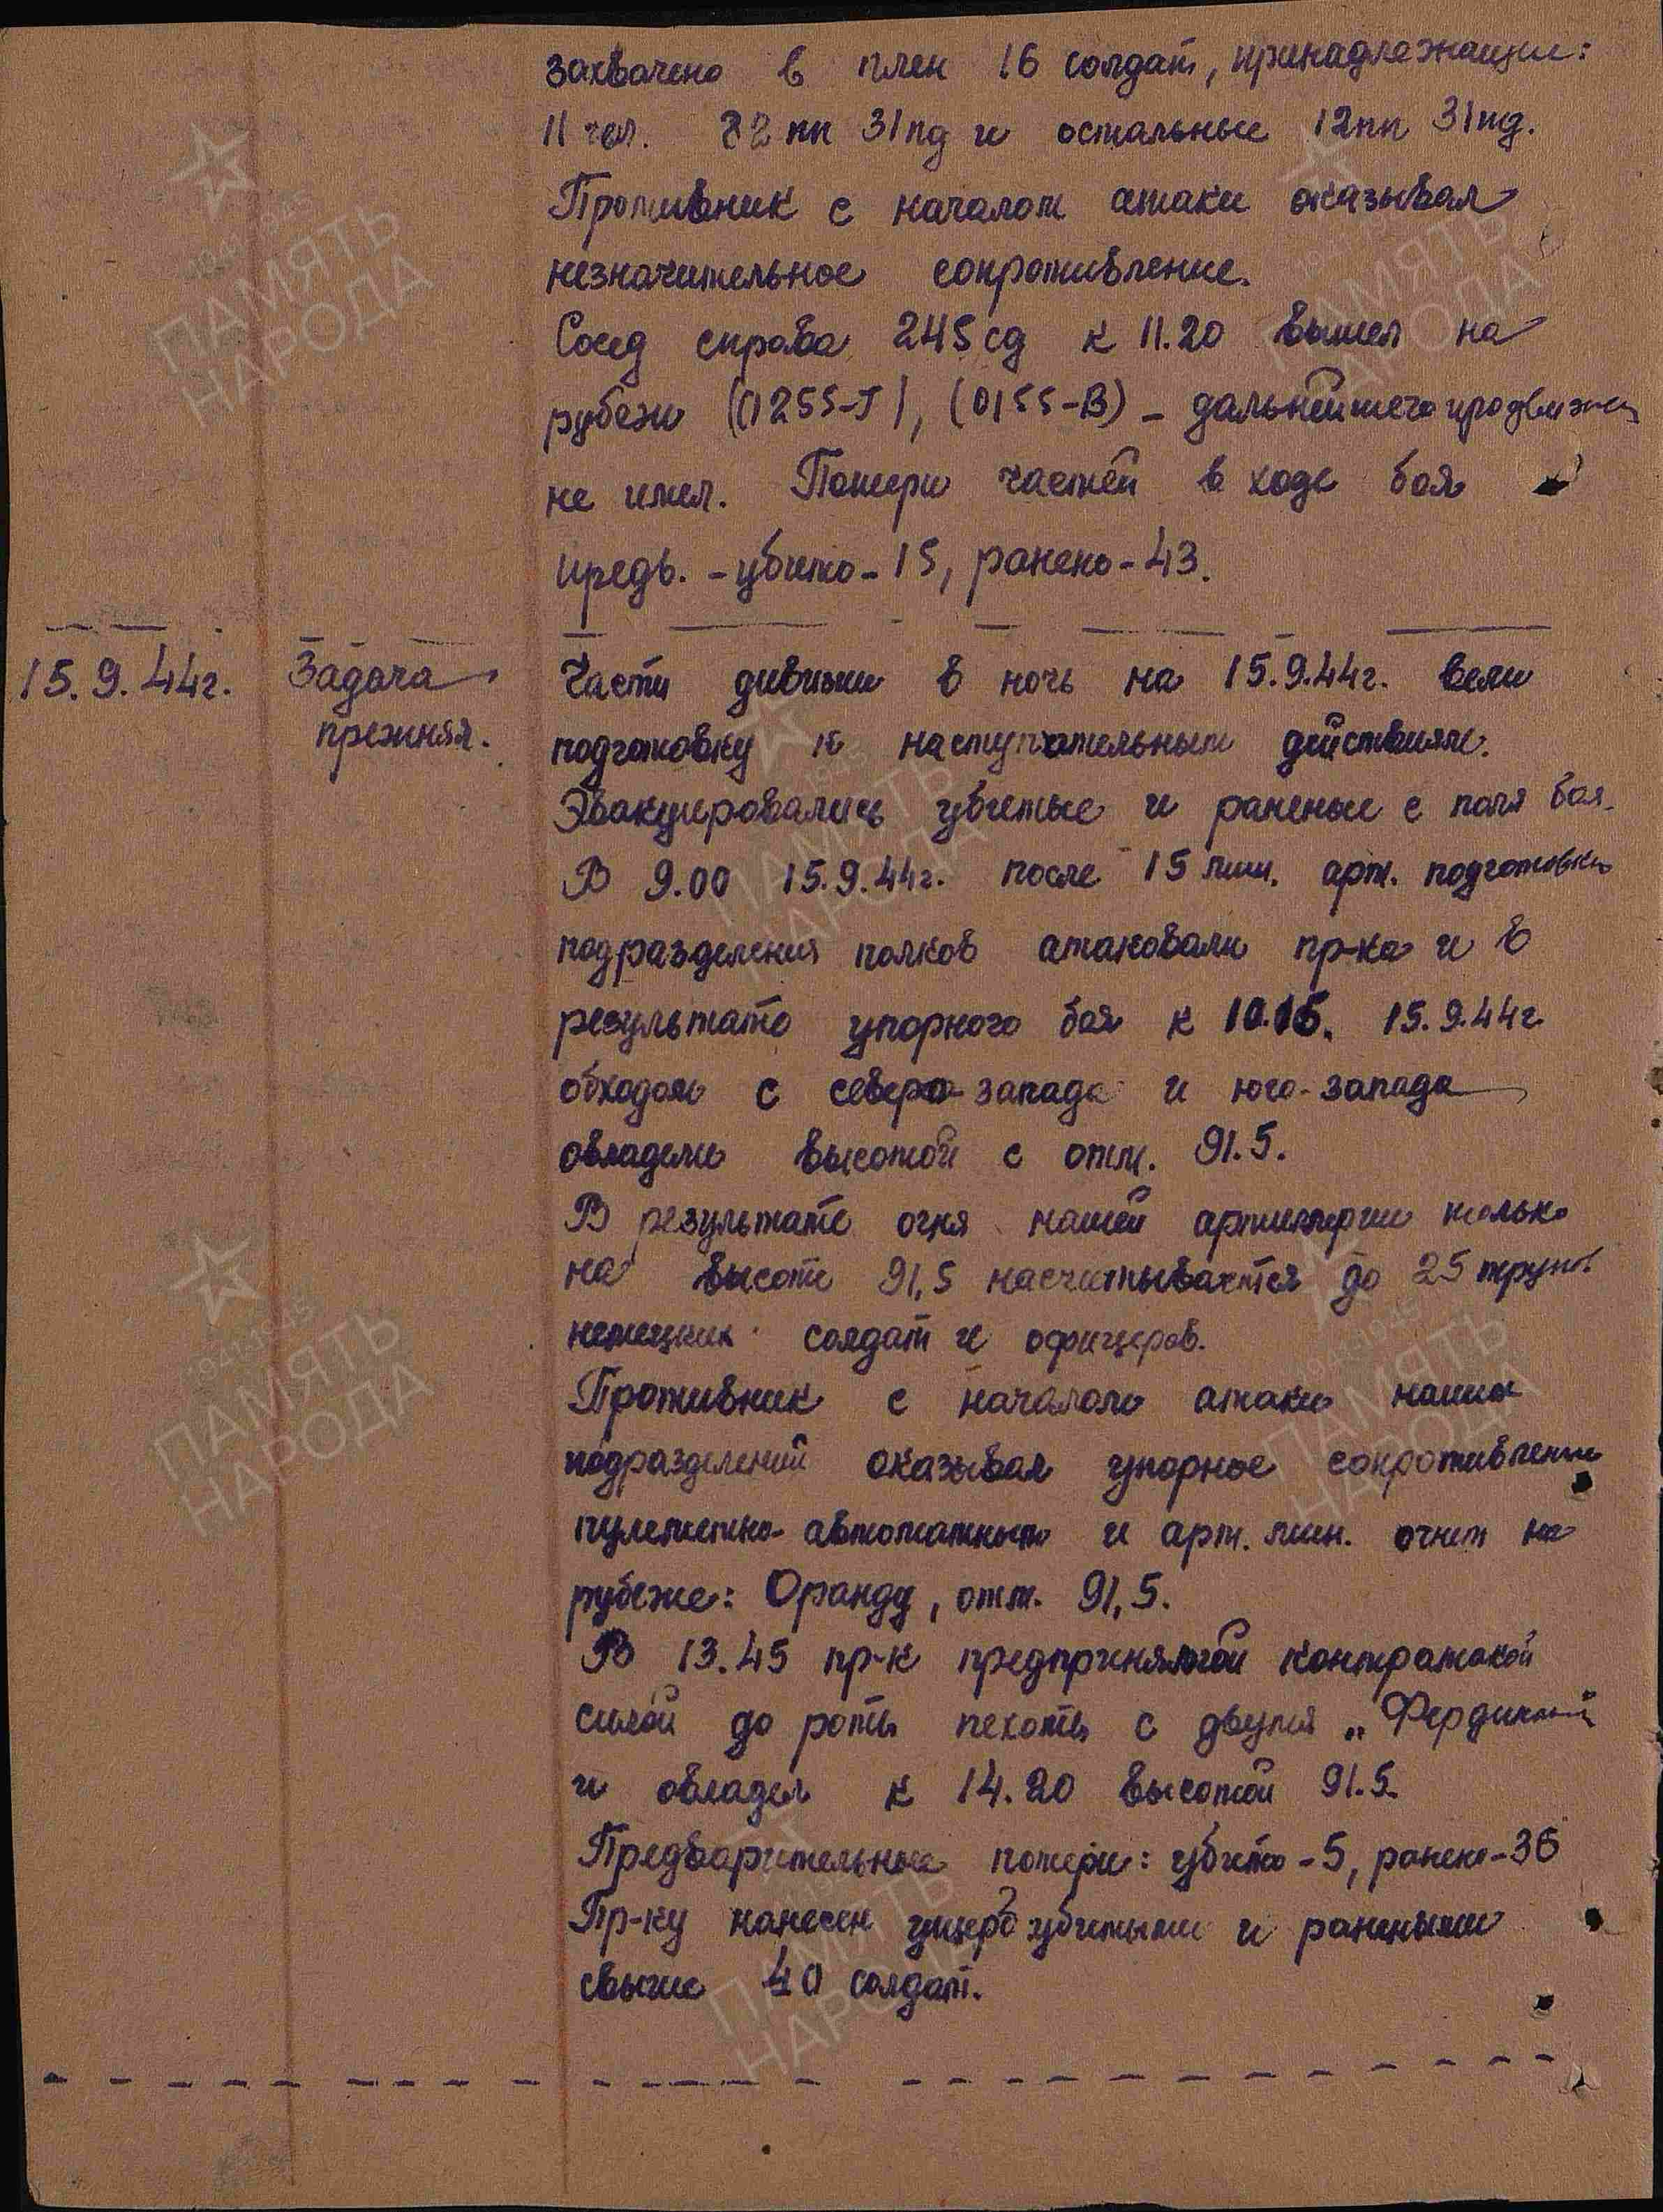 захвачено в плен 16 солдат, принадлежащие:
11 чел. 82 пп 31пд и остальные 12пп 31пд.
Противник с началом атаки оказывал
незначительное сопротивление.
Сосед справа 245 сд к 11.20 вышел на
рубеж (0255-Г), (0155-В) – дальнейшего продвижен
не имел. Потери частей в ходе боя
предв. – убито – 15, ранено – 43.
15.9.44г. Задача прежняя.
Части дивизии в ночь на 15.9.44г. вели
подготовку к наступательным действиям.
Эвакуировались убитые и раненые с поля боя.
В 9.00 15.9.44г. после 15 мин. арт. подготовки
подразделения полков атаковали пр-ка и в
результате упорного боя к 10.15. 15.9.44г.
обходом с северо-запада и юго-запада
овладели высотой с отм. 91.5.
В результате огня нашей артиллерии только
на высоте 91,5 насчитывается до 25 трупов
немецких солдат и офицеров.
Противник с началом атаки наших
подразделений оказывал упорное сопротивление
пулеметно-автоматным и арт. мин. огнем на
рубеже: Оранду, отм. 91,5.
В 13.45 пр-к предпринятой контратакой
силой до роты пехоты с двумя „Фердинанд"
и овладел к 14.20 высотой 91.5.
Предварительные потери: убито – 5, ранено – 36
Пр-ку нанесен ущерб убитыми и ранеными
свыше 40 солдат.
ПАМЯТЬ НАРОДА
1941-1945